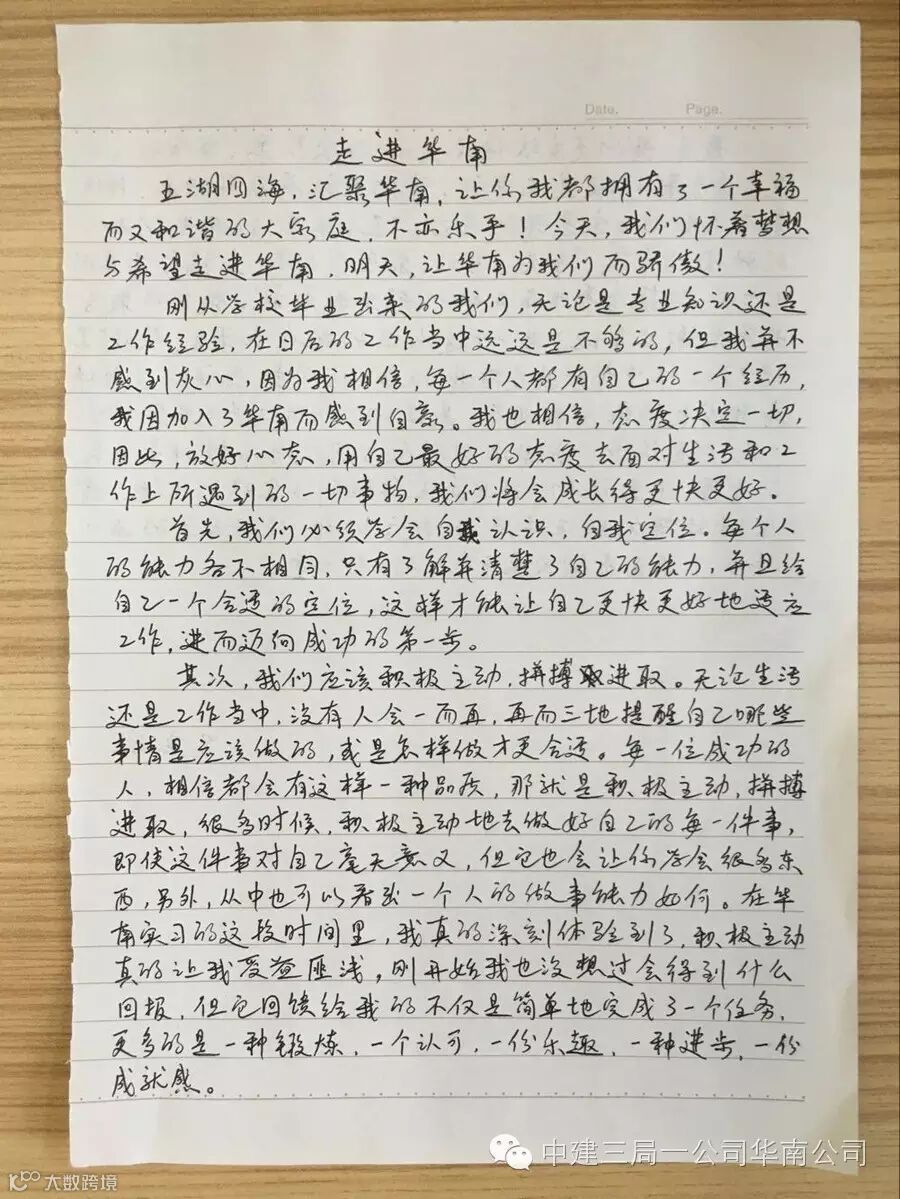 Date.
Page.
走进华南
五湖四海，汇聚华南，让你我都拥有了一个幸福
而又和谐的大家庭，不亦乐乎！今天，我们怀着梦想
与希望走进华南，明天，让华南为我们而骄傲！
刚从学校毕业出来的我们，无论是专业知识还是
工作经验，在日后的工作当中远远是不够的，但我并不
感到灰心，因为我相信，每一个人都有自己的一个经历，
我因加入了华南而感到自豪。我也相信，态度决定一切，
因此，放好心态，用自己最好的态度去面对生活和工
作上所遇到的一切事物，我们将会成长得更快更好。
首先，我们必须学会自我认识，自我定位。每个人
的能力各不相同，只有了解并清楚了自己的能力，并且给
自己一个合适的定位，这样才能让自己更快更好地适应
工作，进而迈向成功的第一步。
其次，我们应该积极主动，拼搏进取。无论生活
还是工作当中，没有人会一而再，再而三地提醒自己哪些
事情是应该做的，或是怎样做才更合适。每一位成功的
人，相信都会有这样一种品质，那就是积极主动，拼搏
进取，很多时候，积极主动地去做好自己的每一件事，
即使这件事对自己毫无意义，但它也会让你学会很多东
西，另外，从中也可以看出一个人的做事能力如何。在华
南实习的这段时间里，我真的深刻体验到了，积极主动
真的让我受益匪浅，刚开始我也没想过会得到什么
回报，但它回馈给我的不仅是简单地完成了一个任务，
更多的是一种锻炼，一个认可，一份乐趣，一种进步，一份
成就感。
中建三局一公司华南公司
大数跨境